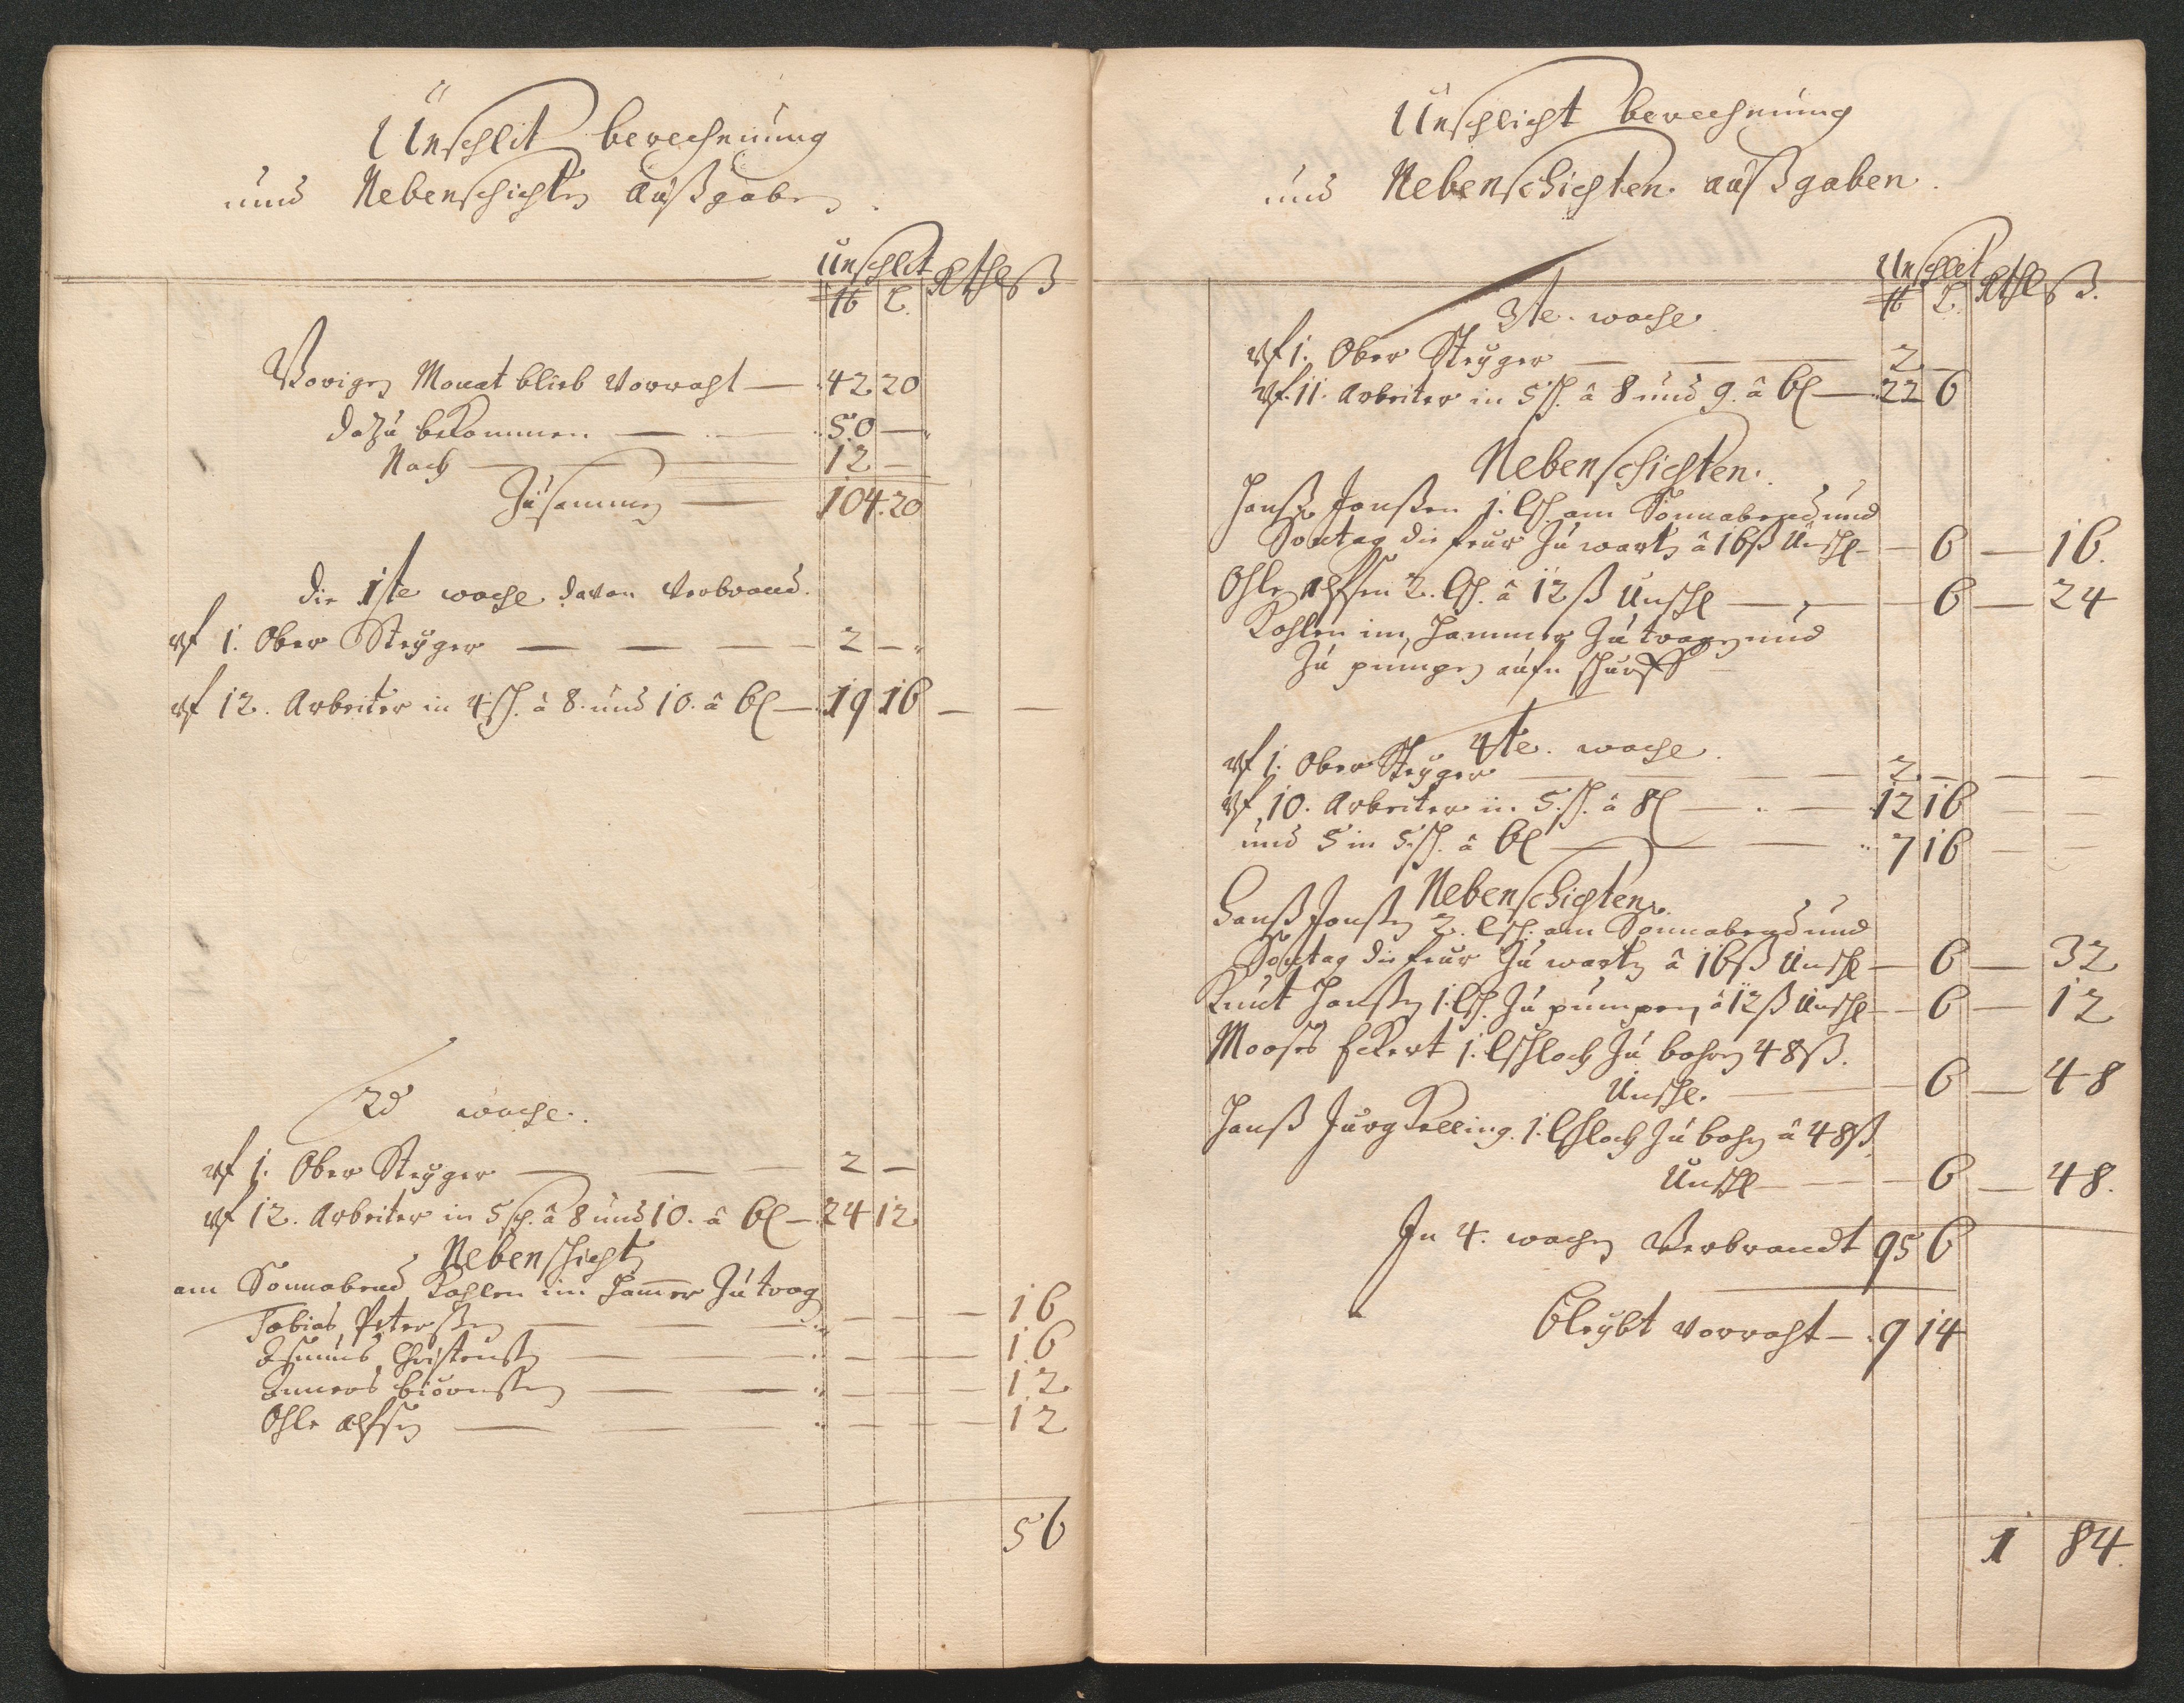 Unschlit berechnung
und Nebenschichten außgaben.
Unschlit Rthl ß
℔ L.
Vorigen Monat blieb Vorraht — 42 20
dazu bekommen — 50 —
Noch — 12 —
Zusammen — 104. 20
die 1ste woche davon Verbrand.
uf 1. Ober Steyger — 2 —
uf 12. Arbeiter in 4 sch. â 8. und 10. â 6 l — 19 16 — —
2d woche.
uf 1. Ober Steyger — 2 —
uf 12. Arbeiter in 5 sch. â 8 und 10. â 6 l — 24 12
Nebenschichten
am Sonnabend Kohlen im Hammer zu trag
Tobias Peterßen — 16
Asmus Christensen — 16
Anners Biörnsen — 12
Ohle Alfsen — 12
56
Unschlicht berechnung
und Nebenschichten außgaben.
Unschlit Rthl ß.
℔ L.
3te. woche
uf 1. Ober Steyger — 2 —
uf. 11. Arbeiter in 5 sch. â 8 und 9. â 6 l — 22 6
Nebenschichten.
Hanß Janßen 1. lsch. am Sonnabend und
Sontag die feur zu warten â 16 ß Unschl — 6 — 16.
Ohle Alfsen 2. lsch. â 12 ß Unschl — 6 — 24
Kohlen im Hammer zu tragen und
zu pumpen aufn schurff
4te. woche.
uf 1. Ober Steyger — 2 — — —
uf. 10. Arbeiter in 5. sch. â 8 l — 12 16 — —
und 5 in 5. sch. â 6 l — 7 16 — —
Nebenschichten.
Hanß Janßen 2. lsch. am Sonnabend und
Sontag die feur zu warten â 16 ß Unschl — 6 — 32
Knut Hanßen 1. lsch. zu pumpen, â 12 ß Unschl — 6 — 12
Moses Eckert 1. lschloch zu bohren 48 ß.
Unschl. — 6 — 48
Hanß Jurg Kelling. 1. lschloch zu bohren â 48 ß
Unschl — 6 — 48.
In 4. wochen Verbrandt 95 6
bleybt vorraht — 9 14
1 84.